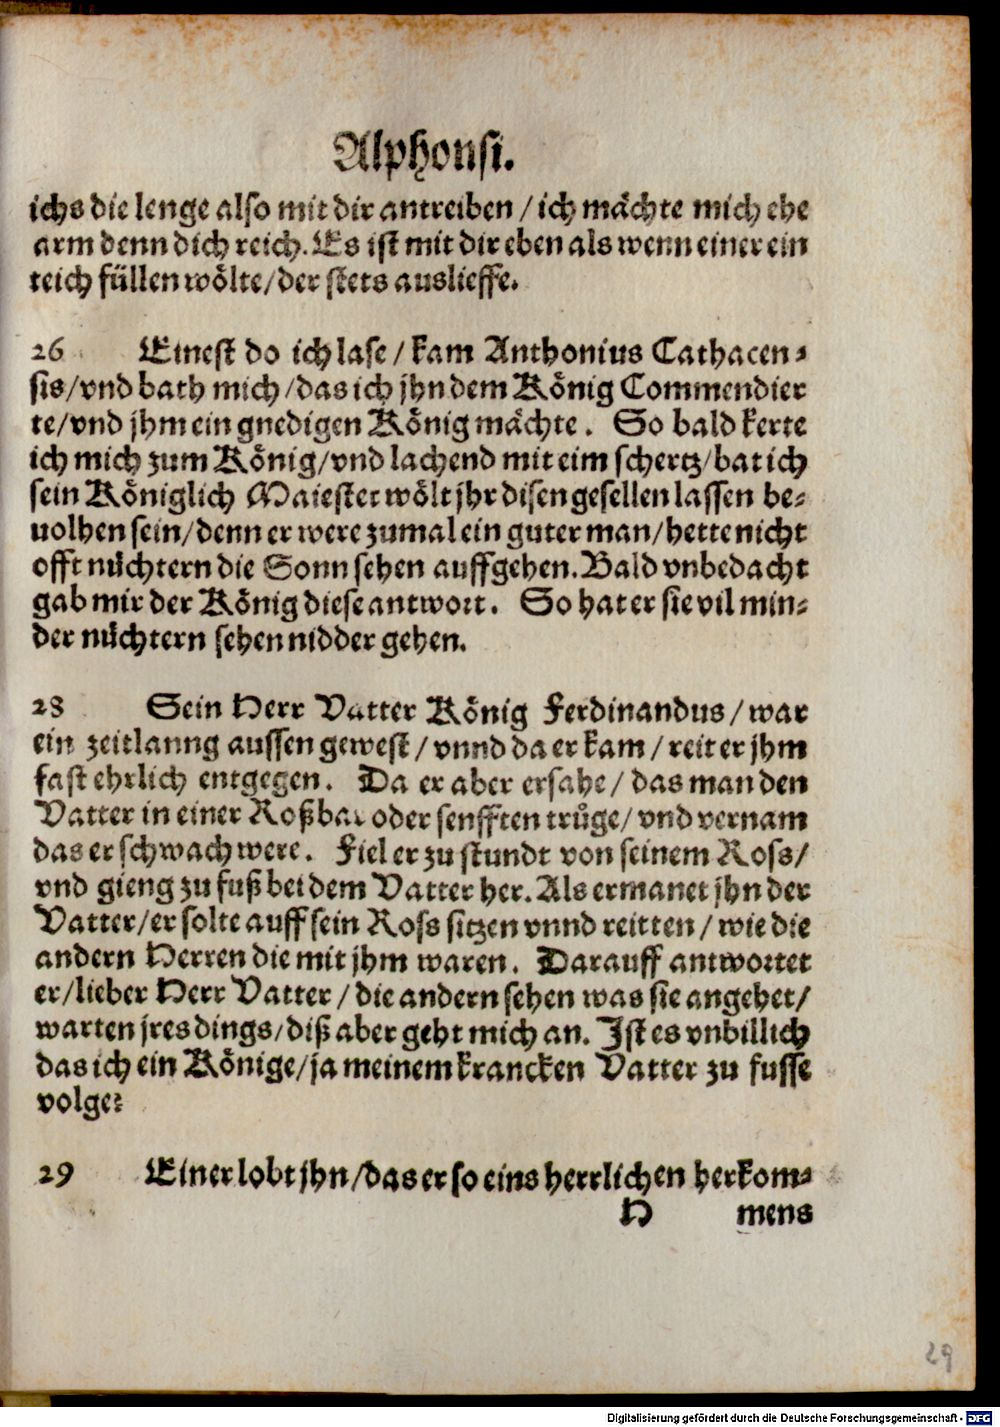 Alphonsi.
ichs die lenge also mit dir antreiben / ich mächte mich ehe
arm denn dich reich. Es ist mit dir eben als wenn einer ein
teich füllen wölte/der stets auslieffe.
26 Einest do ich lase / kam Anthonius Cathacen-
sis/vnd bath mich/das ich jhn dem König Commendier
te/vnd jhm ein gnedigen König mächte. So bald kerte
ich mich zum König/vnd lachend mit eim schertz/bat ich
sein Königlich Maiestet wölt jhr disen gesellen lassen be-
uolhen sein/denn er were zumal ein guter man/hette nicht
offt nüchtern die Sonn sehen auffgehen. Bald vnbedacht
gab mir der König diese antwort. So hat er sie vil min-
der nüchtern sehen nidder gehen.
28 Sein Herr Vatter König Ferdinandus/war
ein zeitlanng aussen gewest/vnnd da er kam/reit er jhm
fast ehrlich entgegen. Da er aber ersahe/das man den
Vatter in einer Roßbar oder senfften trůge/vnd vernam
das er schwach were. Fiel er zu stundt von seinem Ross/
vnd gieng zu fuß bei dem Vatter her. Als ermanet jhn der
Vatter/er solte auff sein Ross sitzen vnnd reitten/wie die
andern Herren die mit jhm waren. Darauff antwortet
er/lieber Herr Vatter/die andern sehen was sie angehet/
warten jres dings/diß aber geht mich an. Ist es vnbillich
das ich ein Könige/ja meinem krancken Vatter zu fusse
volge?
29 Einer lobt jhn/das er so eins herrlichen herkom-
H mens
29
Digitalisierung gefördert durch die Deutsche Forschungsgemeinschaft - DFG